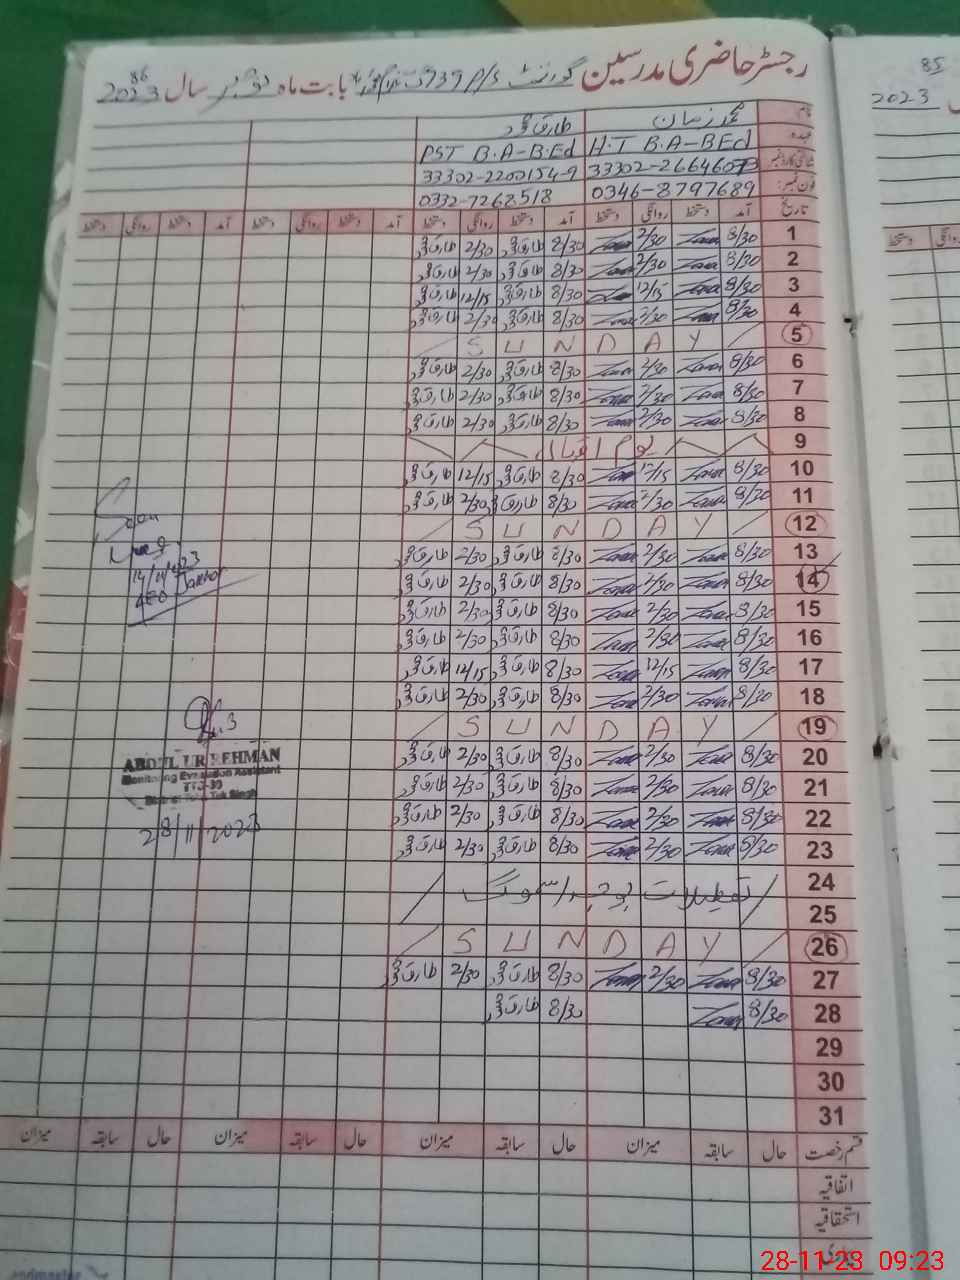 رجسٹر حاضری مدرسین گورنمنٹ P/S 739 بابت ماہ نومبر سال 2023
86
نام محمد زمان طارق محمود
عہدہ H.T B.A-B.Ed PST B.A-B.Ed
شناختی کارڈ نمبر 33302-26646073 33302-2200154-9
فون نمبر: 0346-8797689 0332-7268518
تاریخ آمد دستخط روانگی دستخط آمد دستخط روانگی دستخط آمد دستخط روانگی دستخط آمد دستخط روانگی دستخط
1 8/30 2/30 8/30 طارق محمود 2/30 طارق محمود
2 8/30 2/30 8/30 طارق محمود 2/30 طارق محمود
3 8/30 12/15 8/30 طارق محمود 12/15 طارق محمود
4 8/30 2/30 8/30 طارق محمود 2/30 طارق محمود
5 SUNDAY
6 8/30 2/30 8/30 طارق محمود 2/30 طارق محمود
7 8/30 2/30 8/30 طارق محمود 2/30 طارق محمود
8 8/30 2/30 8/30 طارق محمود 2/30 طارق محمود
9 یوم اقبال
10 8/30 12/15 8/30 طارق محمود 12/15 طارق محمود
11 8/30 2/30 8/30 طارق محمود 2/30 طارق محمود
12 SUNDAY
13 8/30 2/30 8/30 طارق محمود 2/30 طارق محمود
14 8/30 2/30 8/30 طارق محمود 2/30 طارق محمود
15 8/30 2/30 8/30 طارق محمود 2/30 طارق محمود
16 8/30 2/30 8/30 طارق محمود 2/30 طارق محمود
17 8/30 12/15 8/30 طارق محمود 12/15 طارق محمود
18 8/30 2/30 8/30 طارق محمود 2/30 طارق محمود
19 SUNDAY
20 8/30 2/30 8/30 طارق محمود 2/30 طارق محمود
21 8/30 2/30 8/30 طارق محمود 2/30 طارق محمود
22 8/30 2/30 8/30 طارق محمود 2/30 طارق محمود
23 8/30 2/30 8/30 طارق محمود 2/30 طارق محمود
24 تعطیلات بوجہ سموگ
25
26 SUNDAY
27 8/30 2/30 8/30 طارق محمود 2/30 طارق محمود
28 8/30 8/30 طارق محمود
29
30
31
قسم رخصت حال سابقہ میزان حال سابقہ میزان حال سابقہ میزان حال سابقہ میزان
اتفاقیہ
استحقاقیہ
بیماری
14/11/2023
AEO
ABDUL UR REHMAN
Monitoring Evaluation Assistant
District Toba Tek Singh
28/11/2023
85
2023
دستخط روانگی
28-11-23 09:23